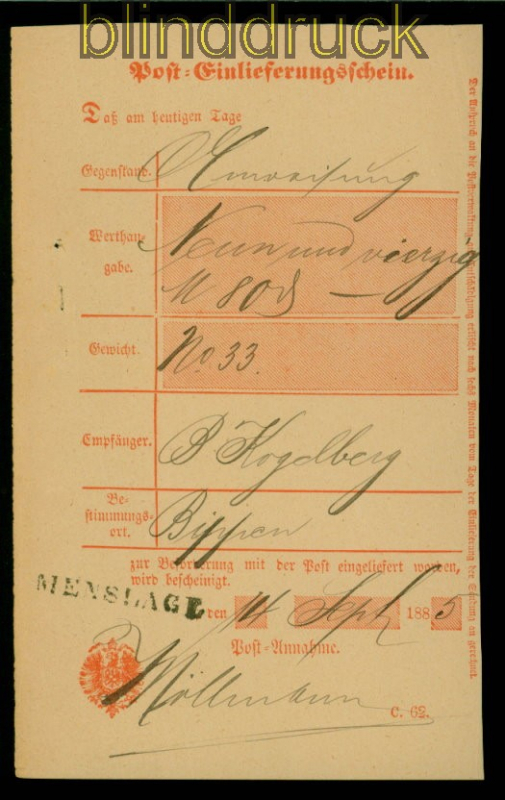 blinddruck
Post-Einlieferungsschein.
Daß am heutigen Tage
Gegenstand.
Anweisung
Werthan-
gabe.
Neun und vierzig
M 80 ₰ —
Gewicht.
No 33.
Empfänger.
P Kogelberg
Be-
stimmungs-
ort.
Bippen
zur Beförderung mit der Post eingeliefert worden,
wird bescheinigt.
MENSLAGE
den 14 Sept 1885
Post-Annahme.
Möllmann
C. 62.
Der Anspruch an die Postverwaltung auf Entschädigung erlischt nach sechs Monaten vom Tage der Einlieferung der Sendung an gerechnet.